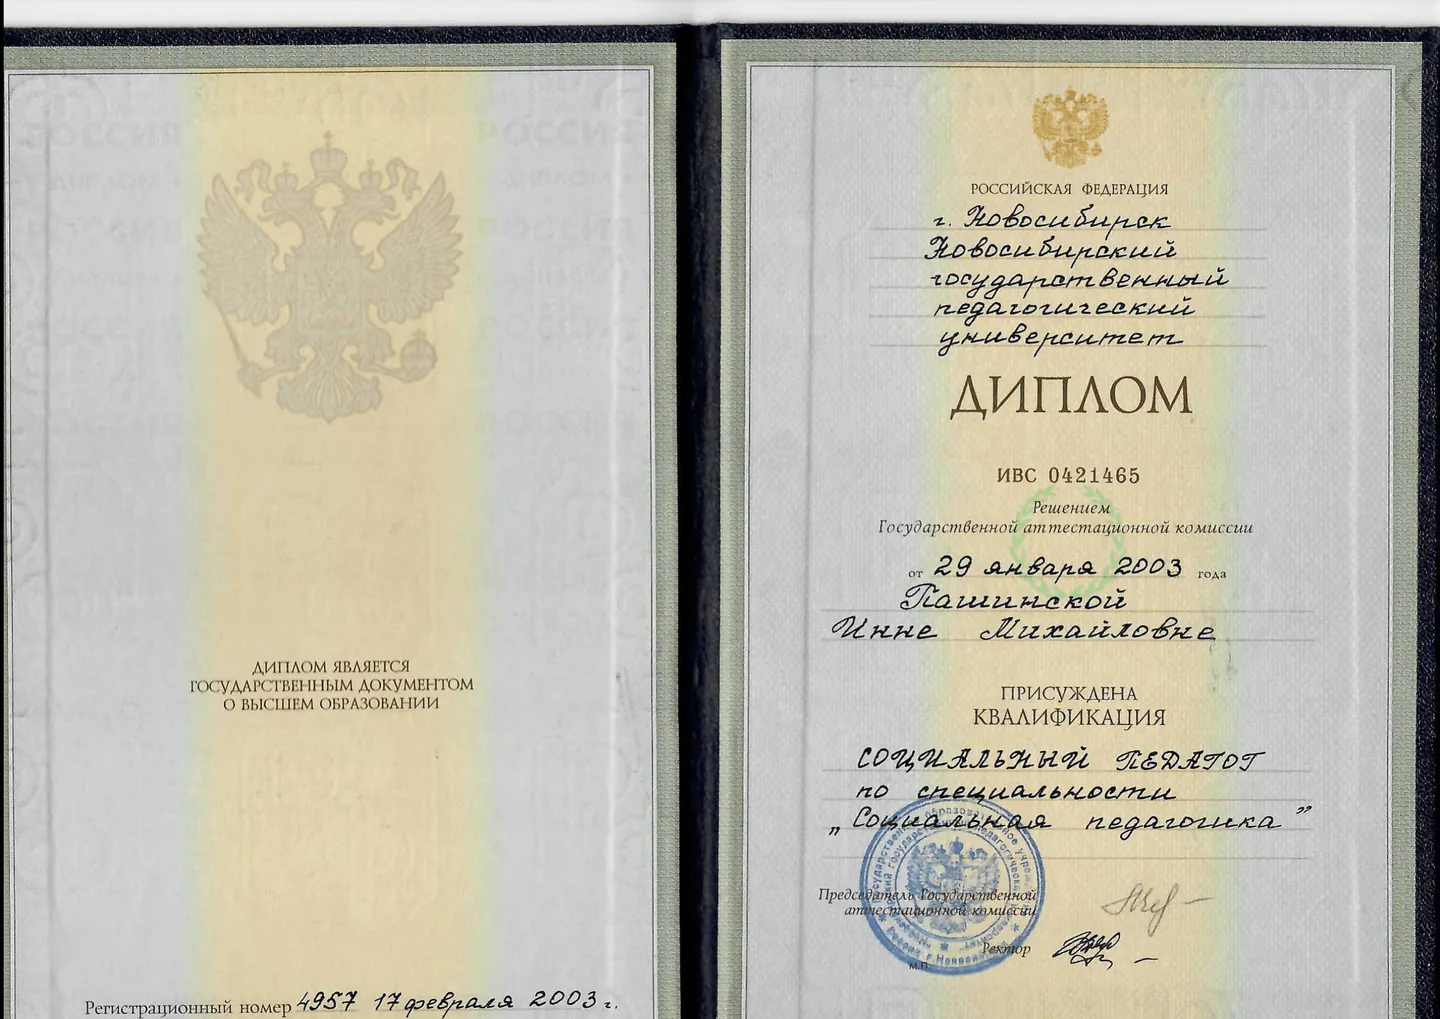 ДИПЛОМ ЯВЛЯЕТСЯ
ГОСУДАРСТВЕННЫМ ДОКУМЕНТОМ
О ВЫСШЕМ ОБРАЗОВАНИИ
Регистрационный номер 4957 17 февраля 2003 г.
РОССИЙСКАЯ ФЕДЕРАЦИЯ
г. Новосибирск
Новосибирский
государственный
педагогический
университет
ДИПЛОМ
ИВС 0421465
Решением
Государственной аттестационной комиссии
от 29 января 2003 года
Пашинской
Инне Михайловне
ПРИСУЖДЕНА
КВАЛИФИКАЦИЯ
СОЦИАЛЬНЫЙ ПЕДАГОГ
по специальности
„Социальная педагогика”
Председатель Государственной
аттестационной комиссии
Ректор
М.П.